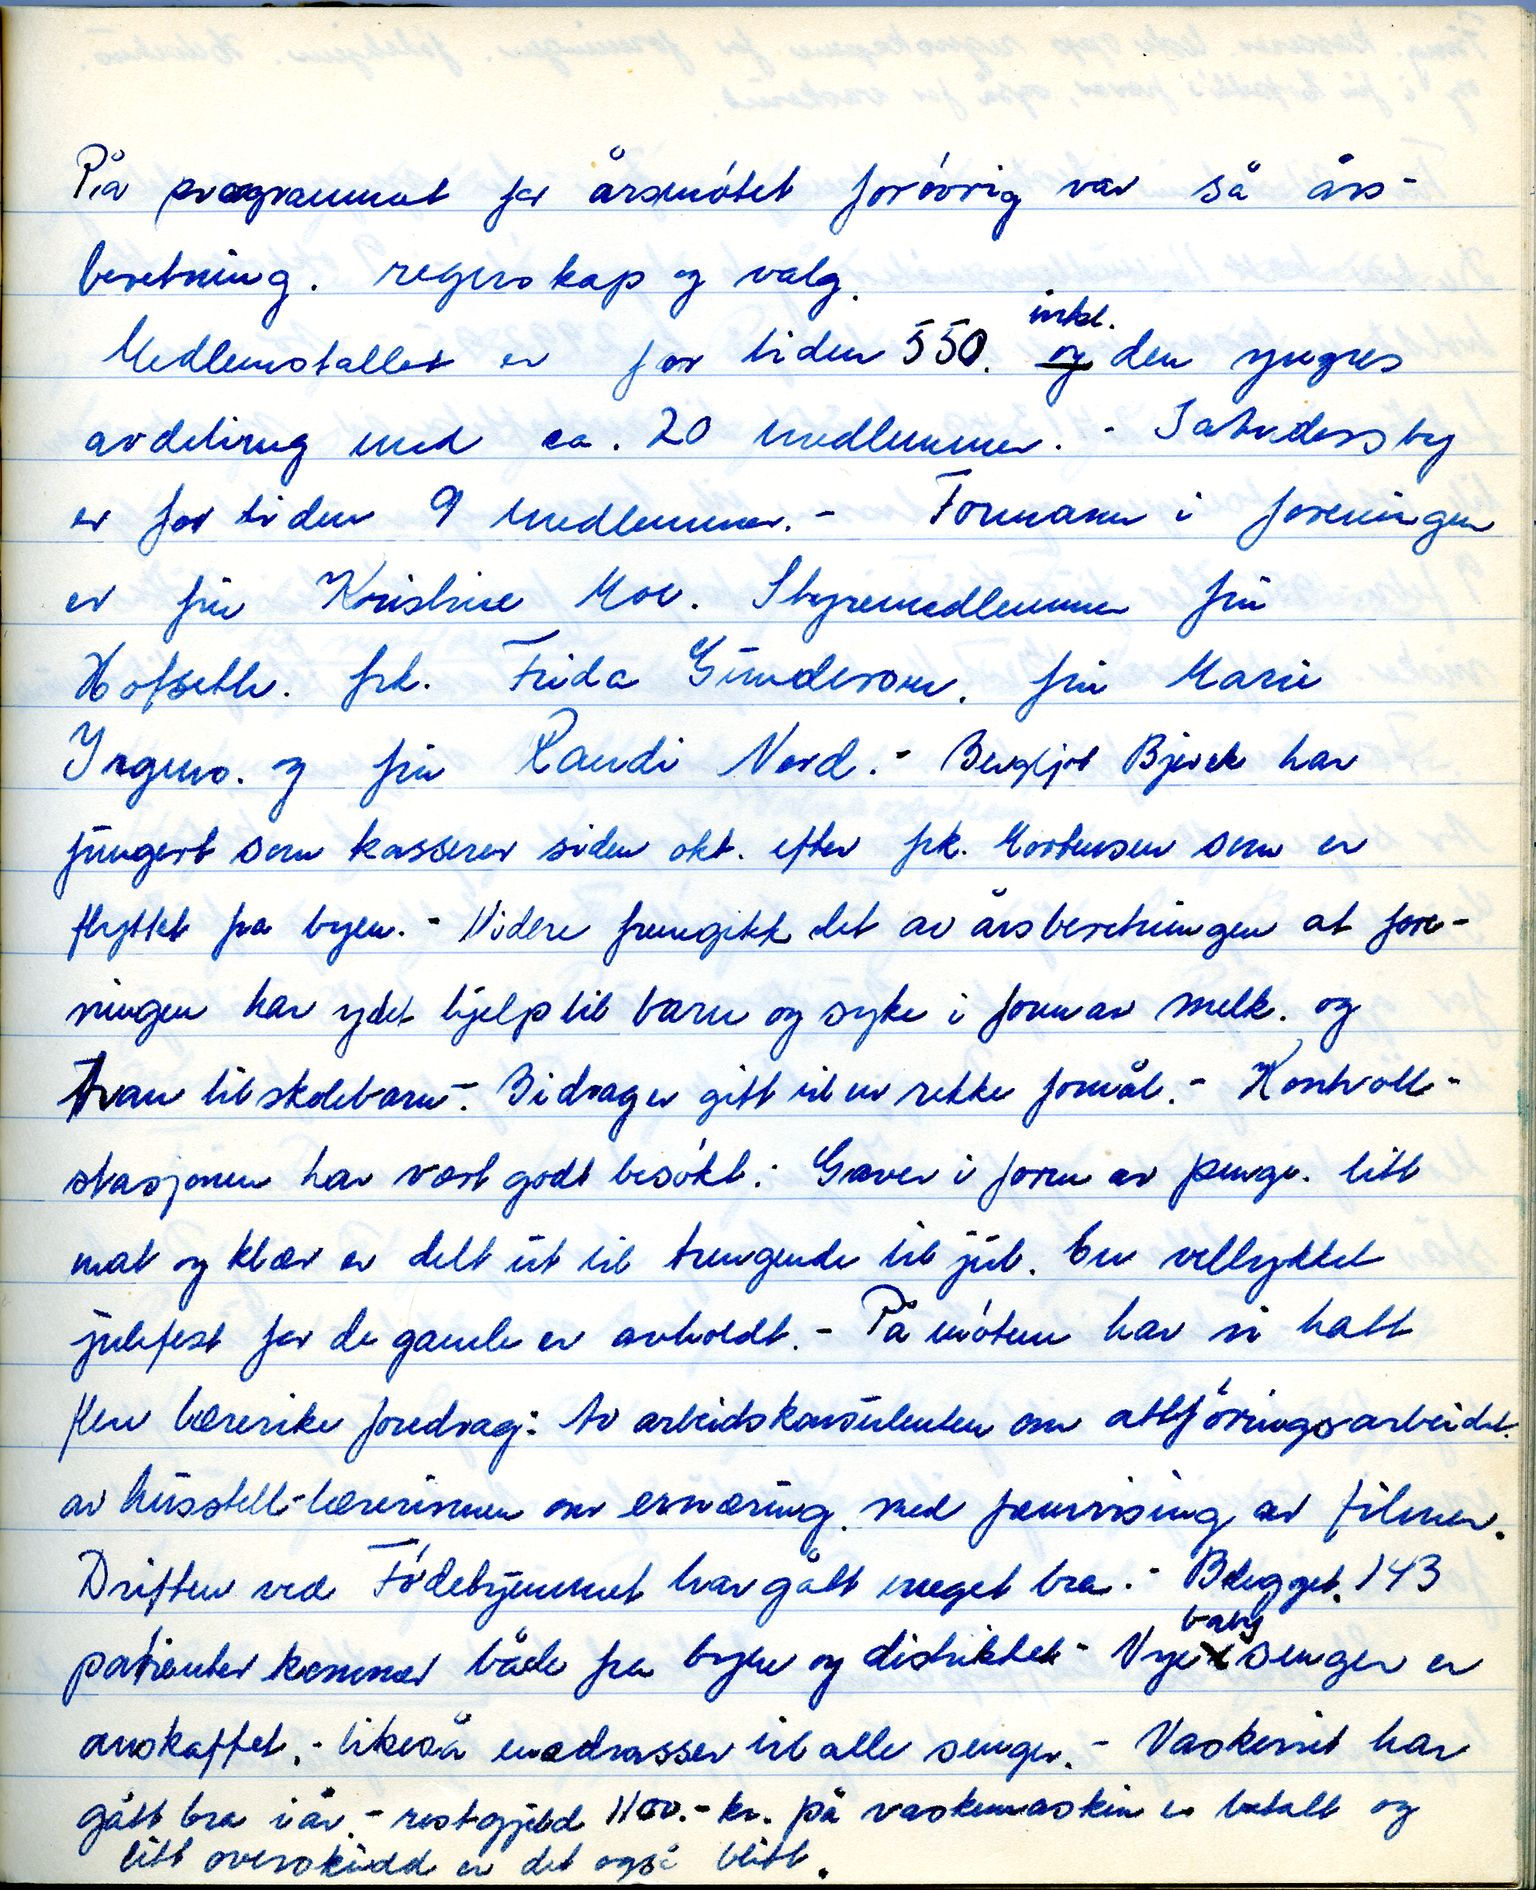 På programmet for årsmótet foróvrig var så års-
beretning. regnskap og valg.
Medlemstallet er for tiden 550. inkl. og den yngres
avdeling med ca. 20 medlemmer. -
er for tiden 9 medlemmer. - Formann i foreningen
er frú Kristine Moe. Styremedlemmer frú
Hofseth. frk. Frida Gúnderson. frú Marie
Irgens. og frú Randi Nord. - Bergljot Bjerck har
fúngert som kasserer siden okt. efter frk. Mortensen som er
flyttet fra byen. - Videre fremgikk det av årsberetningen at fore-
ningen har ydet hjelp til barn og syke i form av melk. og
tran til skolebarn -. Bidrag er gitt til en rekke formål. - Kontroll-
stasjonen har vært godt besókt. Gaver i form av penge. litt
mat og klær er delt út til trengende til júl. En vellykket
júlefest for de gamle er avholdt. - På mótene har vi hatt
flere lærerike foredrag: Av arbeidskonsúlenten om attfóringsarbeidet.
av hússtell-lærerinnen om ernæring. med fremvising av filmer.
Driften ved Fódehjemmet har gått meget bra. - Belegget. 143
patienter kommer både fra byen og distriktet - Nye baby senger er
anskaffet. - likeså madrasser til alle senger. - Vaskeriet har
gått bra i år. - restgjeld 1100.- kr. på vaskemaskin er betalt og
litt overskúdd er det også blitt.